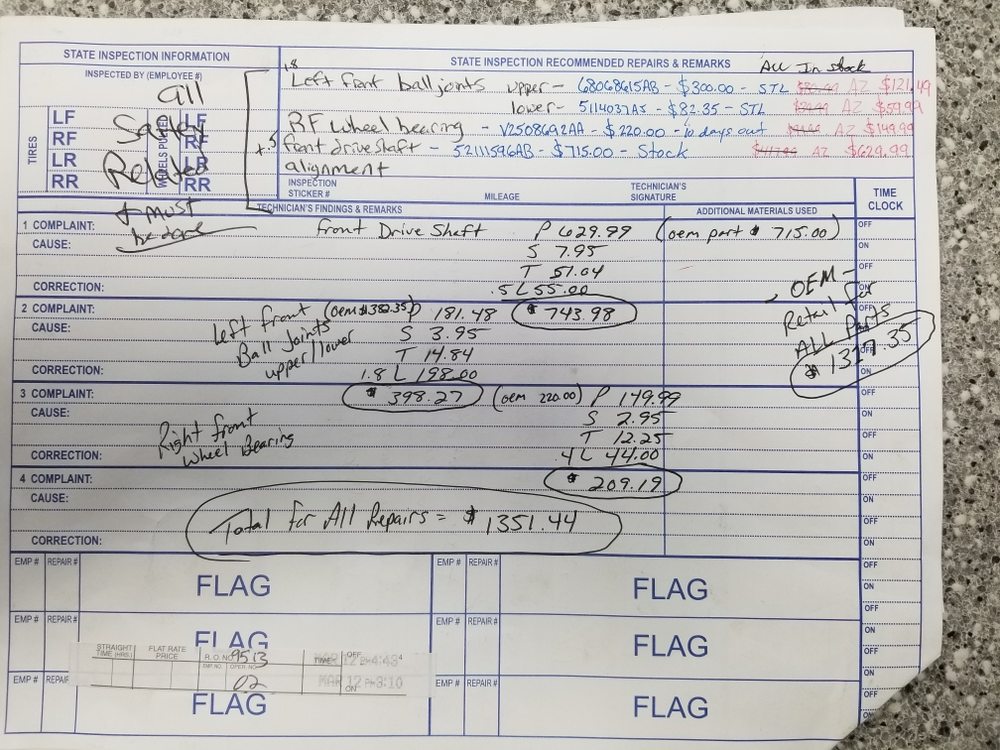 STATE INSPECTION INFORMATION
STATE INSPECTION RECOMMENDED REPAIRS & REMARKS
All In Stock
INSPECTED BY (EMPLOYEE #)
all
Safety
Related
+ must
be done
TIRES
LF
RF
LR
RR
LF
RF
LR
RR
1.8 Left front ball joints upper - 68068615AB - $300.00 - STL AZ $121.49
lower - 5114037AS - $82.35 - STL AZ $59.99
RF wheel bearing - V2508692AA - $220.00 - 10 days out AZ $149.99
+.5 front drive shaft - 52111596AB - $715.00 - Stock AZ $629.99
alignment
INSPECTION
STICKER #
MILEAGE
TECHNICIAN'S
SIGNATURE
TIME
CLOCK
TECHNICIAN'S FINDINGS & REMARKS
ADDITIONAL MATERIALS USED
1 COMPLAINT: front Drive Shaft P 629.99 (oem part $ 715.00)
CAUSE: S 7.95
T 51.04
CORRECTION: .5 L 55.00
$ 743.98
2 COMPLAINT: Left front (oem $382.35) P 181.48
CAUSE: Ball Joints S 3.95
upper/lower T 14.84
CORRECTION: 1.8 L 198.00
$ 398.27
- OEM -
Retail for
ALL Parts
$ 1317.35
3 COMPLAINT: (oem 220.00) P 149.99
CAUSE: Right front S 2.95
Wheel Bearing T 12.25
CORRECTION: .4 L 44.00
$ 209.19
4 COMPLAINT:
CAUSE:
Total for All Repairs = $ 1351.44
CORRECTION:
OFF
ON
OFF
ON
OFF
ON
OFF
ON
OFF
ON
OFF
ON
OFF
ON
OFF
ON
OFF
ON
OFF
ON
EMP # REPAIR # FLAG EMP # REPAIR # FLAG
EMP # REPAIR # FLAG EMP # REPAIR # FLAG
STRAIGHT
TIME (HRS.)
FLAT RATE
PRICE
R.O. NO. 9513
EMP. NO. OPER. NO.
02
TIME
OFF
MAR 12 PM 4:48
MAR 12 PM 3:10
ON
EMP # REPAIR FLAG EMP # REPAIR # FLAG